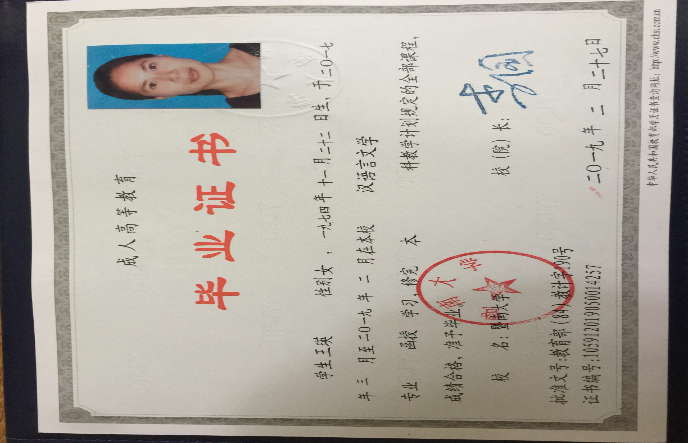 成人高等教育
毕业证书
学生王瑛 性别女，一九七四年十一月二十二日生，于二〇一七
年三月至二〇一九年二月在本校 汉语言文学
专业 函授 学习，修完 本 科教学计划规定的全部课程，
成绩合格，准予毕业
校 名：暨南大学 校（院）长：
批准文号：教育部（84）教计字190号 二〇一九年二月二十七日
证书编号：105912019050014257
中华人民共和国教育部学历证书查询网址：http://www.chsi.com.cn